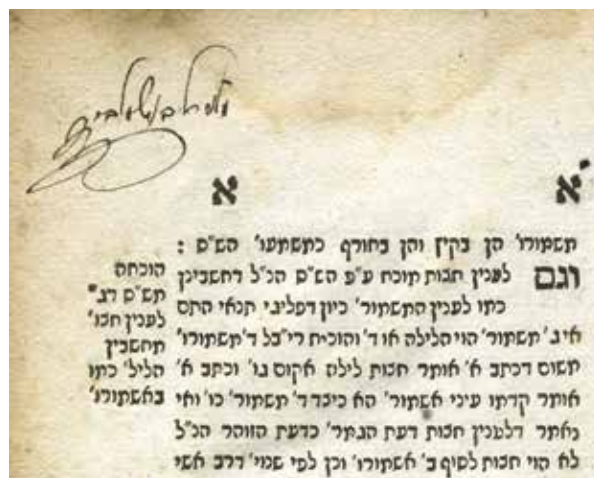 א א
משמורו' הן בקיץ והן בחורף כמשמעו' הש"ס :
וגם לענין חצות מוכח ע"פ הש"ס הנ"ל דחשבינן
כמו לענין המשמור' כיון דפליגי תנאי התם
אי ג' משמור' הוי הלילה או ד' והוכיח רי"בל ד' משמורו'
משום דכתב א' אומר חצות לילה אקום גו' וכתב א'
אומר קדמו עיני אשמור' הא כיצד ד' משמור' כו' ואי
נאמר דלענין חצות דעת הגמר' כדעת הזוהר הנ"ל
לא הוי חצות לסוף ב' אשמורו' וכן לפי שנוי' דרב אשי
הוכחה
מש"ס
לענין חצו'
מחשבין
הליל' כמו
באשמורו'